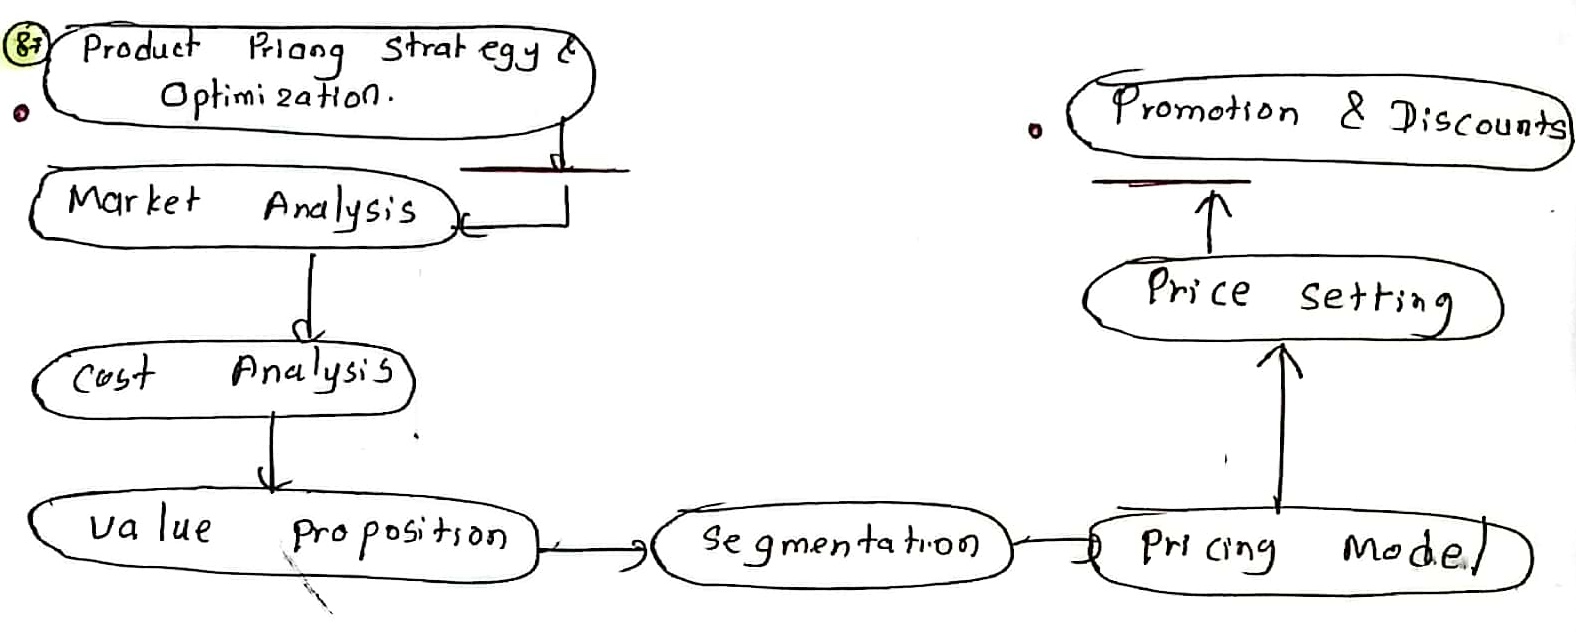 87
Product Pricing Strategy &
Optimization.
Market Analysis
Cost Analysis
Value Proposition
Segmentation
Pricing Model
Price Setting
Promotion & Discounts